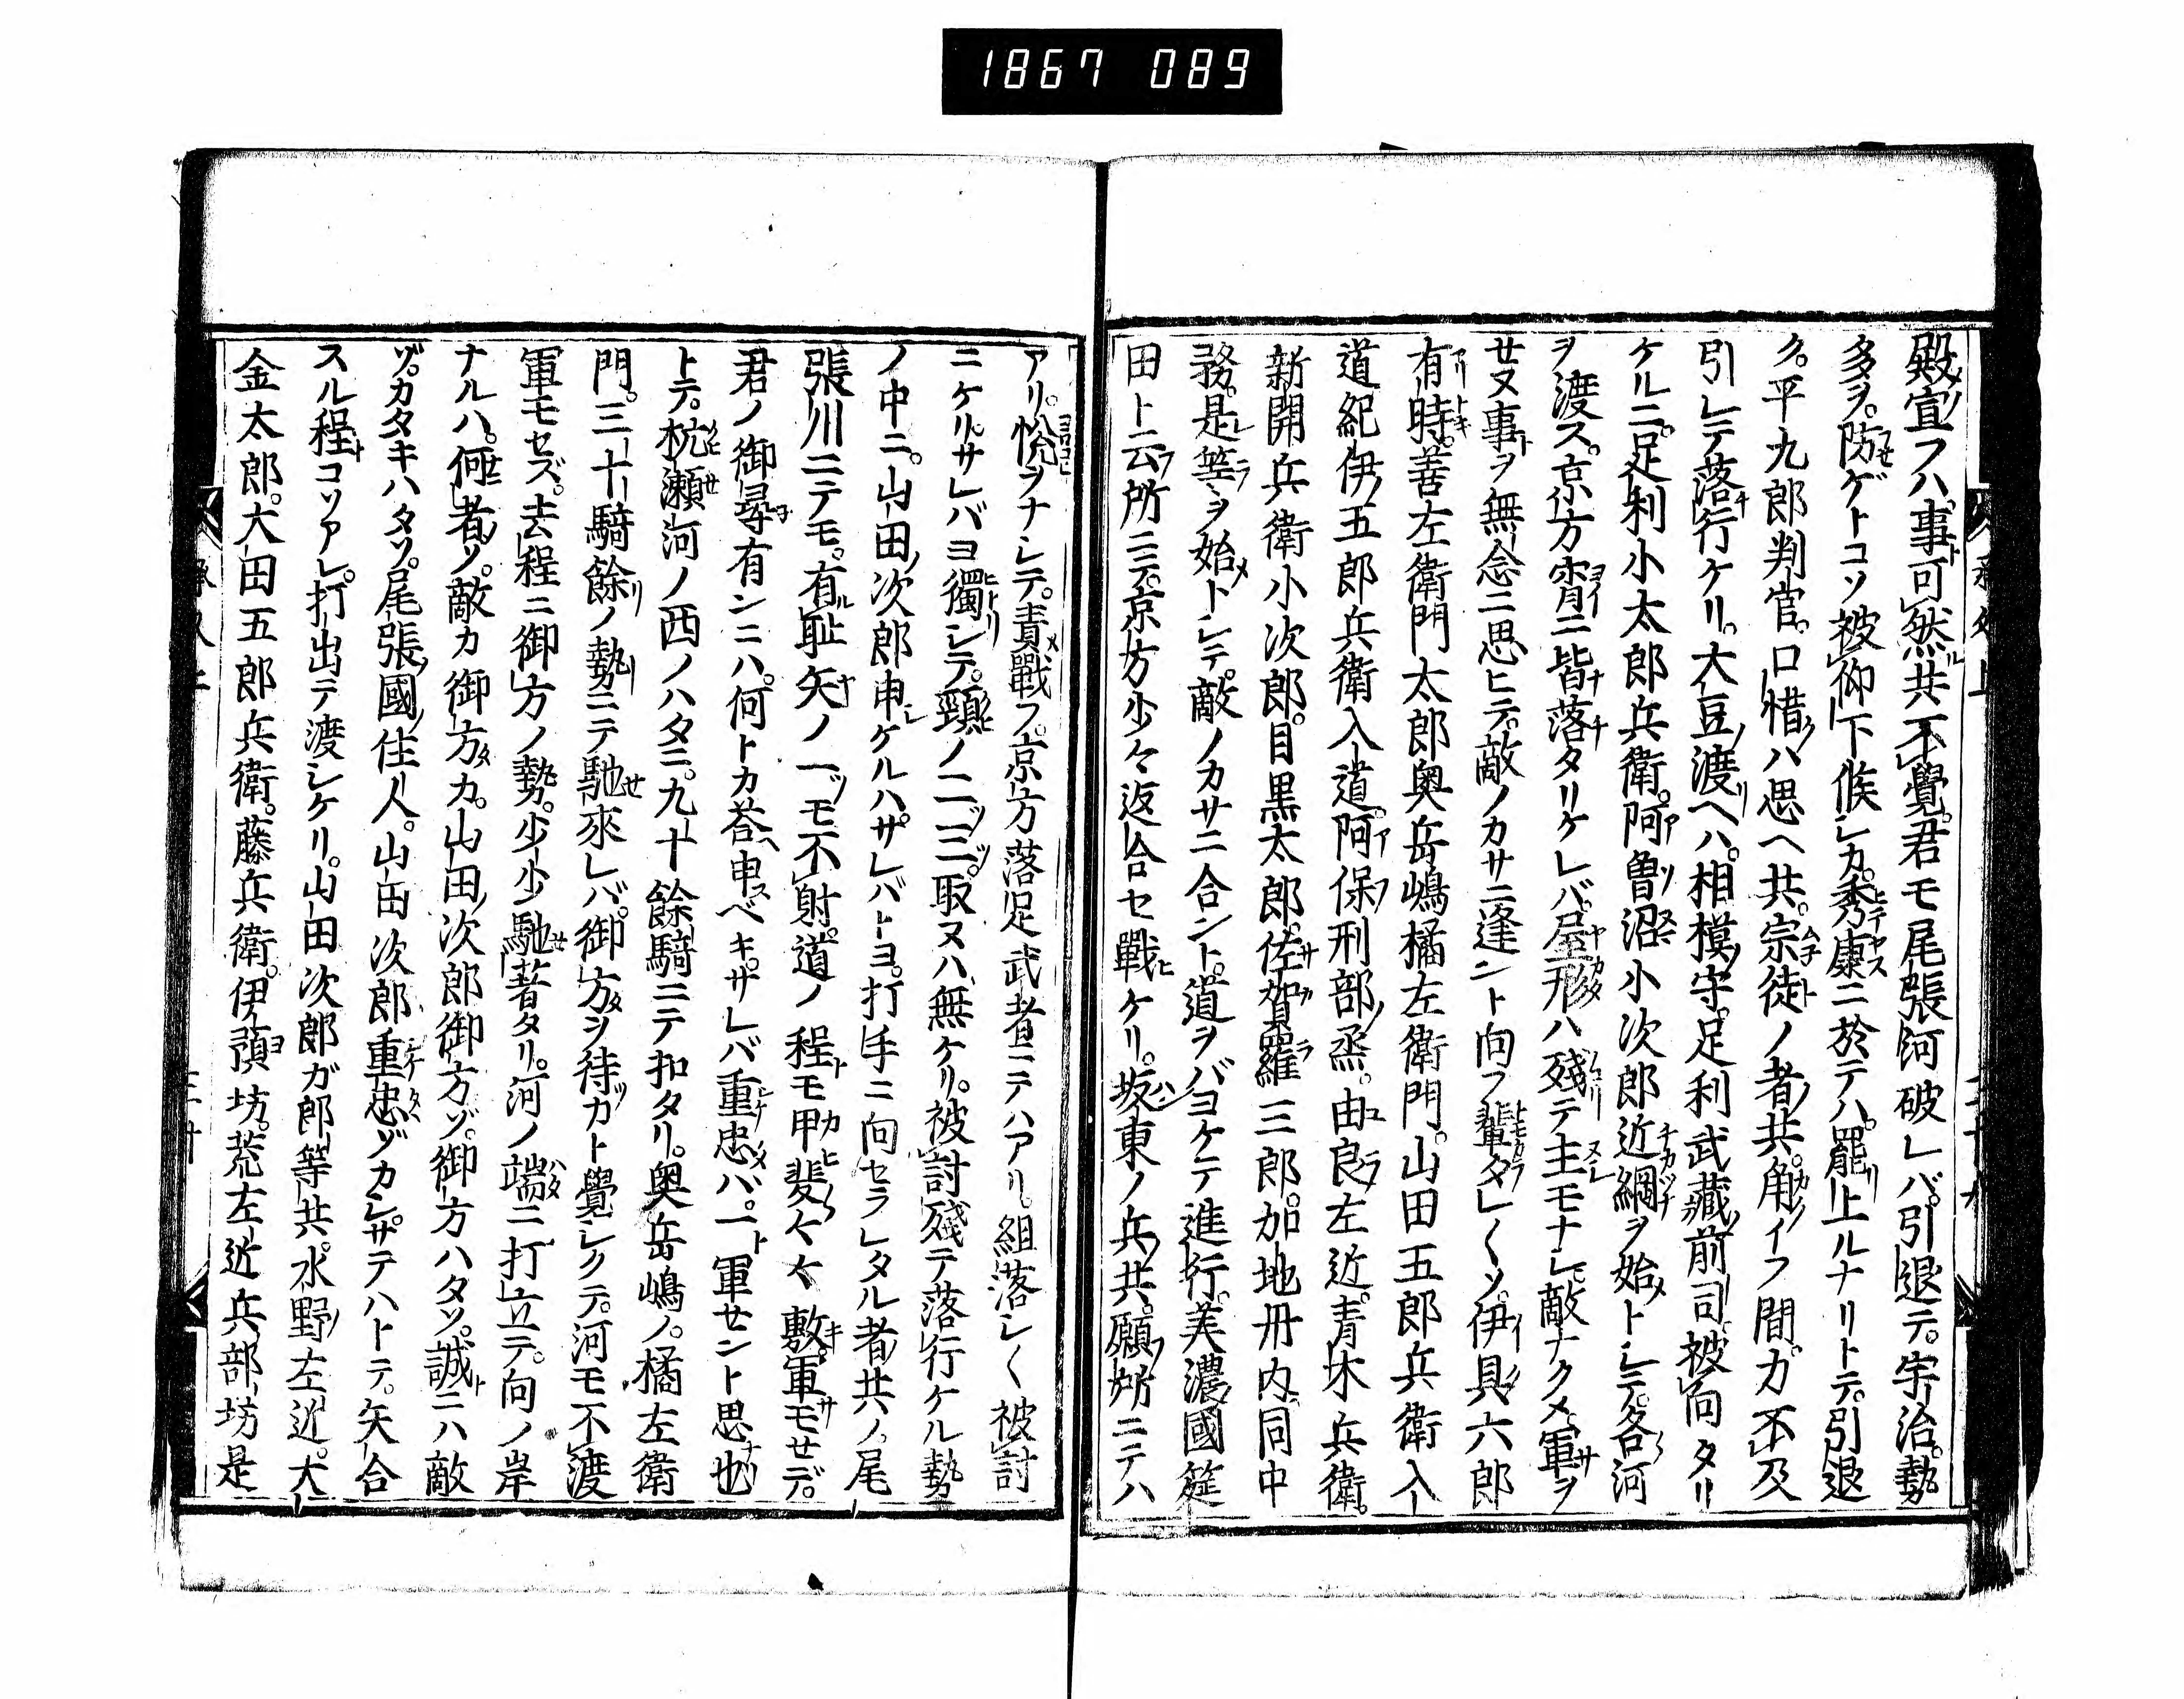 1867 089
殿宣フハ。事可然共不覺。君モ尾張河破レバ。引退テ。宇治。勢
多ヲ。防ゲトコソ被仰下候シカ。秀康ニ於テハ。罷上ルナリトテ。引退
ク。平九郎判官。口惜ハ思ヘ共。宗徒ノ者共。角イフ間。力不及
引シテ落行ケリ。大豆渡ヘハ。相模守。足利武藏前司被向タリ
ケルニ。足利小太郎兵衛。阿曽沼小次郎近綱ヲ始トシテ。各河
ヲ渡ス。京方宵ニ皆落タリケレバ。屋形ハ殘テ主モナシ。敵ナクメ軍ヲ
セヌ事ヲ無念ニ思ヒテ。敵ノカサニ逢ント向フ輩タレ〱ソ。伊具六郎
有時。善左衛門太郎。奥岳嶋橘左衛門。山田五郎兵衛入
道。紀伊五郎兵衛入道。阿保刑部丞。由良左近。青木兵衛。
新開兵衛小次郎。目黒太郎。佐賀羅三郎。加地丹内。同中
務。是等ヲ始トシテ。敵ノカサニ合ント。道ヲバヨケテ進行。美濃國筵
田ト云所ニテ。京方少々返合セ戰ケリ。坂東ノ兵共。願所ニテハ
アリ。悦ヲナシテ。責戰フ。京方落足武者ニテハアリ。組落シ〱被討
ニケリ。サレバヨ獨シテ。頸ノ二ツ三ツ取ヌハ無ケリ。被討殘テ落行ケル勢
ノ中ニ。山田次郎申ケルハ。サレバトヨ。打手ニ向セラレタル者共ノ。尾
張川ニテモ。有恥矢ノ一ツモ不射。道ノ程モ甲斐々々敷軍モセデ。
君ノ御尋有ンニハ。何トカ荅申ベキ。サレバ重忠ハ。一軍セント思也
トテ。杭瀬河ノ西ノハタニ。九十餘騎ニテ扣タリ。奥岳嶋ノ。橘左衛
門。三十騎餘ノ勢ニテ馳來レバ。御方ヲ待カト覺シクテ。河モ不渡
軍モセズ。去程ニ御方ノ勢。少少馳著タリ。河ノ端ニ打立テ。向ノ岸
ナルハ。何者ソ。敵カ御方カ。山田次郎御方ゾ。御方ハタソ。誠ニハ敵
ゾ。カタキハタソ。尾張國住人。山田次郎重忠ゾカシ。サテハトテ。矢合
スル程コソアレ。打出テ渡シケリ。山田次郎ガ郎等共。水野左近。大
金太郎。太田五郎兵衛。藤兵衛。伊預坊。荒左近兵部坊是